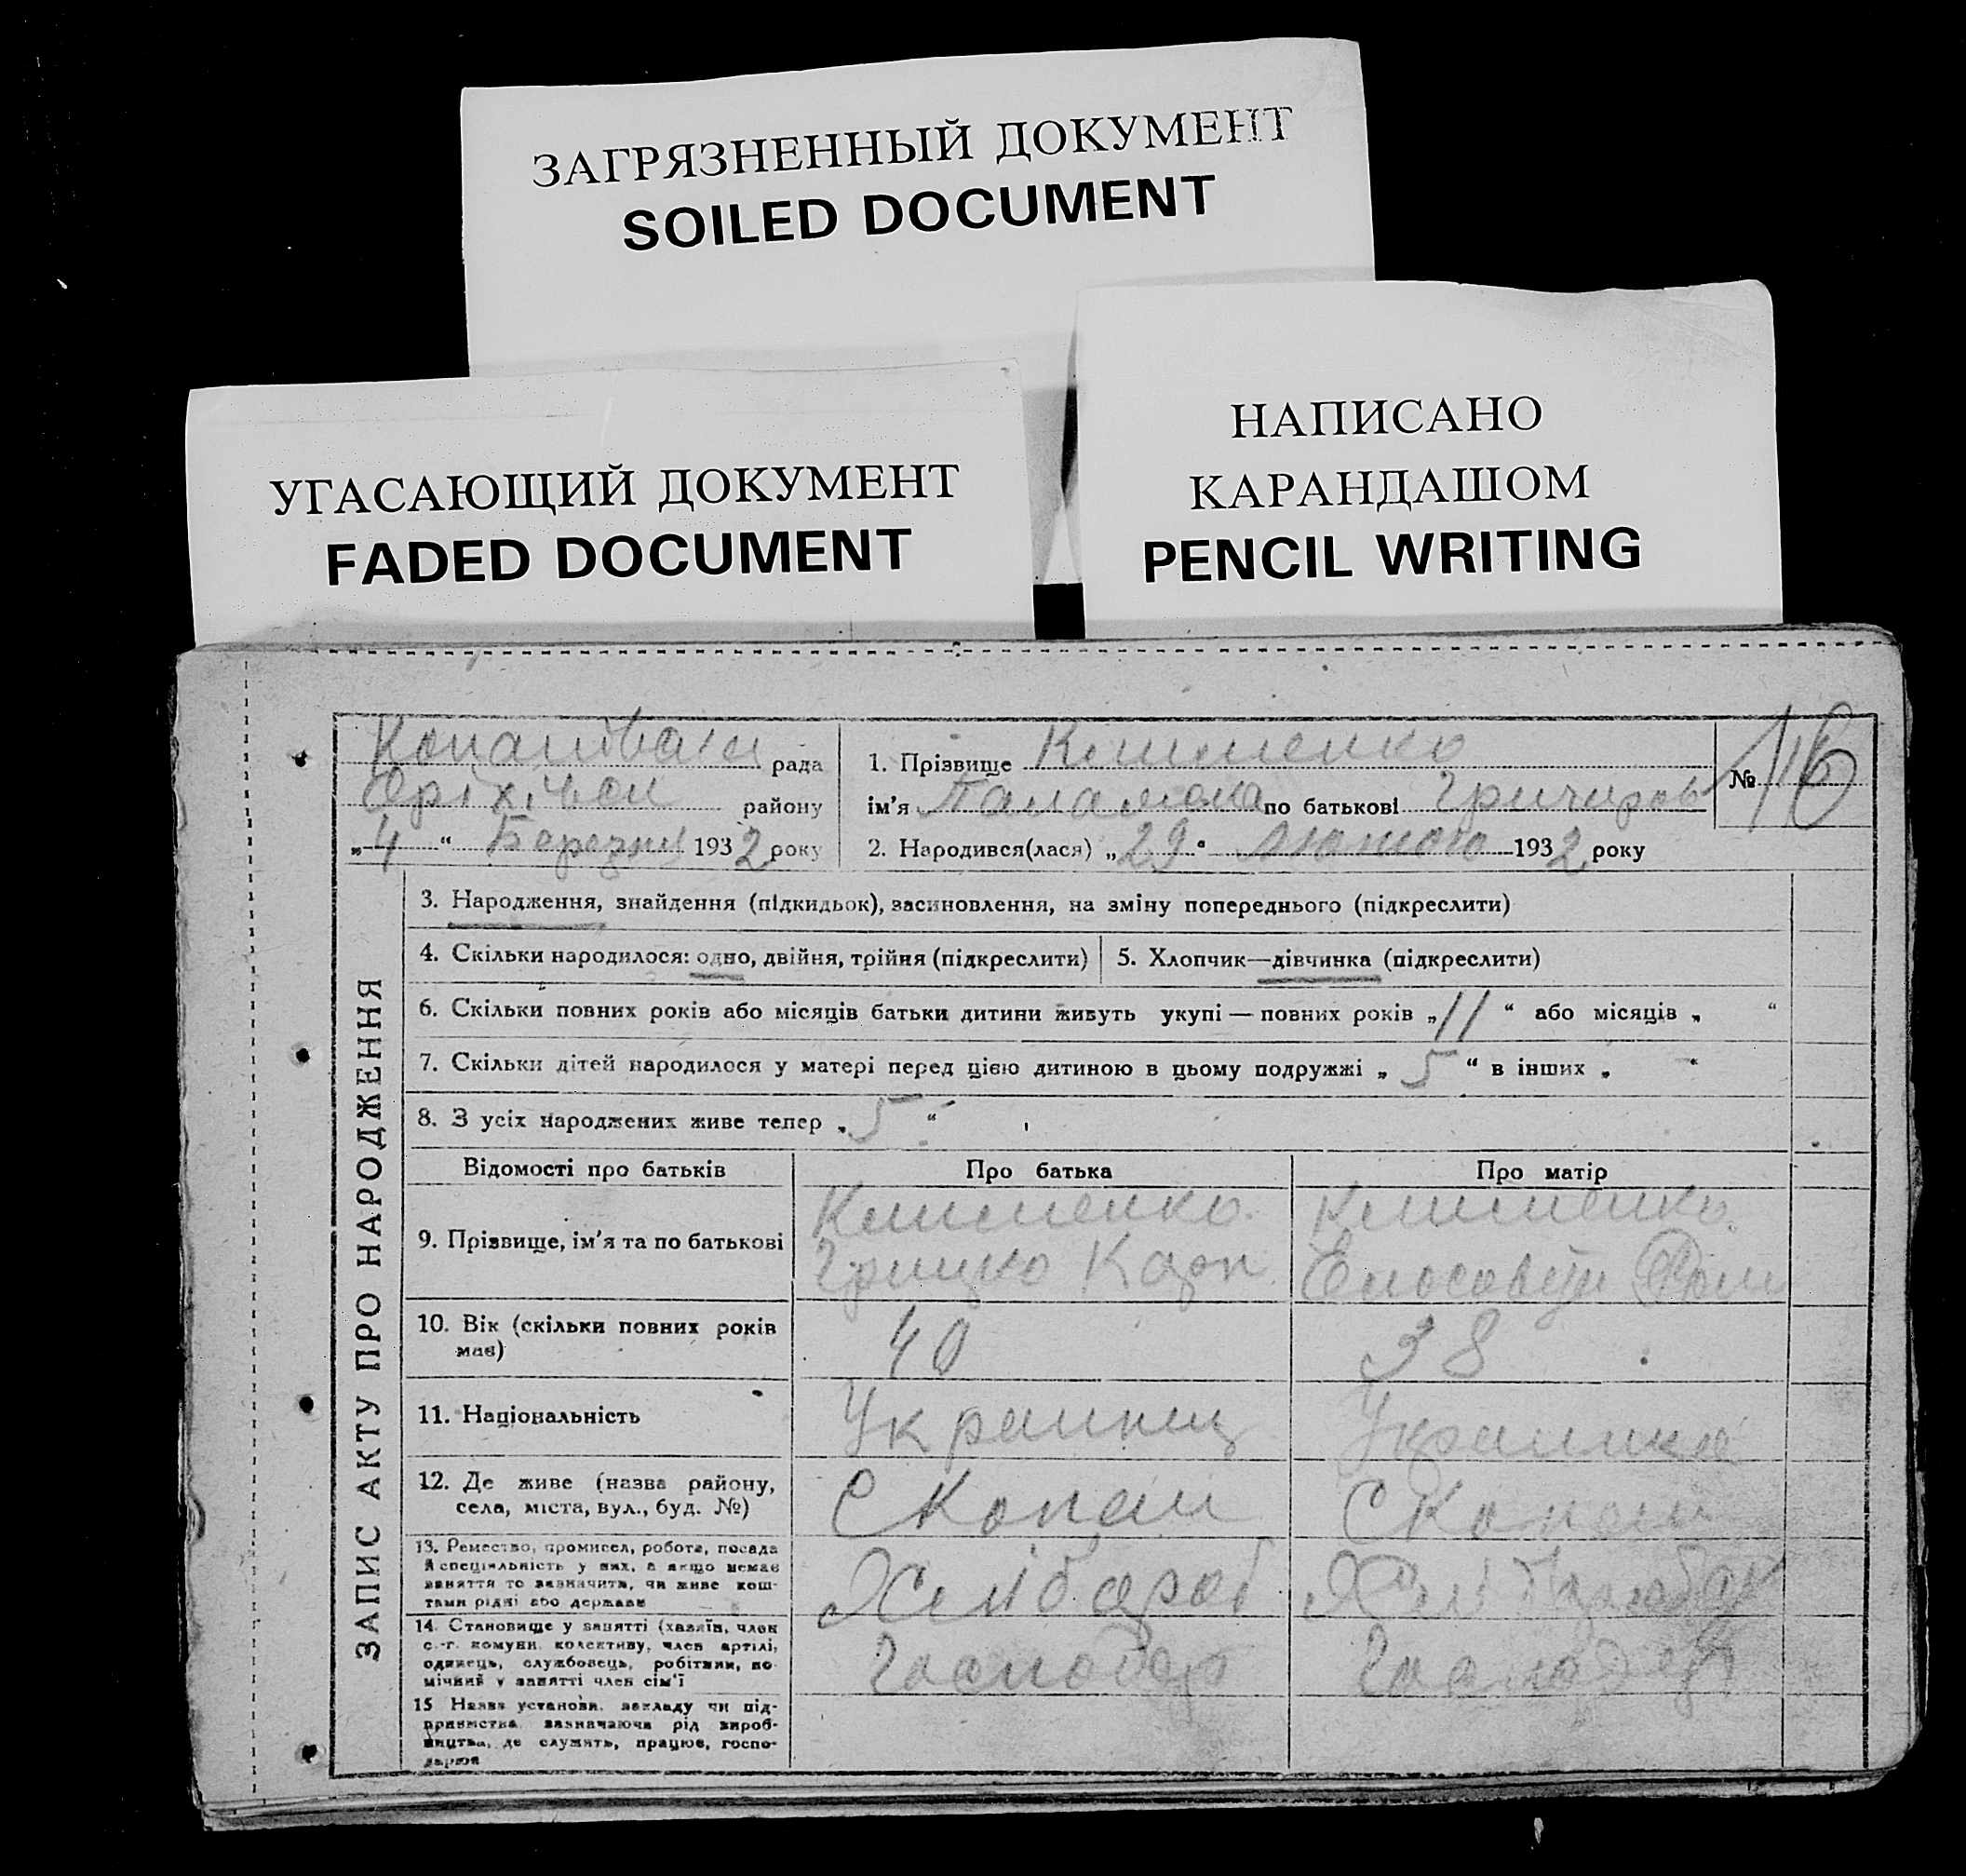 ЗАГРЯЗНЕННЫЙ ДОКУМЕНТ
SOILED DOCUMENT
УГАСАЮЩИЙ ДОКУМЕНТ
FADED DOCUMENT
НАПИСАНО
КАРАНДАШОМ
PENCIL WRITING
рада
району
„4“ Березня 1932 року
1. Прізвище Клименко
ім'я по батькові
2. Народився(лася) „29“ Лютого 1932 року
№ 16
ЗАПИС АКТУ ПРО НАРОДЖЕННЯ
3. Народження, знайдення (підкидьок), засиновлення, на зміну попереднього (підкреслити)
4. Скільки народилося: одно, двійня, трійня (підкреслити)
5. Хлопчик—дівчинка (підкреслити)
6. Скільки повних років або місяців батьки дитини живуть укупі — повних років „11“ або місяців „ “
7. Скільки дітей народилося у матері перед цією дитиною в цьому подружжі „5“ в інших „-“
8. З усіх народжених живе тепер „5“
Відомості про батьків Про батька Про матір
9. Прізвище, ім'я та по батькові
Клименко Клименко
Грицко Карп
10. Вік (скільки повних років має) 40 38
11. Національність Украинец Украинка
12. Де живе (назва району, села, міста, вул., буд. №) С Копани С Копани
13. Ремество, промисел, робота, посада
й спеціяльність у них, а якщо немає
заняття то зазначити, чи живе кош-
тами рідні або держави
Хлібороб Хлібороб
14. Становище у занятті (хазяїн, член
с.-г. комуни, колективу, член артілі,
одинець, службовець, робітник, по-
мічний у занятті член сім'ї
Господар Господар
15 Назва установи, закладу чи під-
приємства, зазначаючи рід вироб-
ництва, де служить, працює, госпо-
дарює